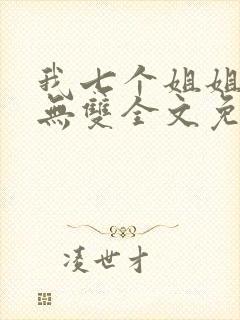 我七个姐姐
無雙全文免
凌世才